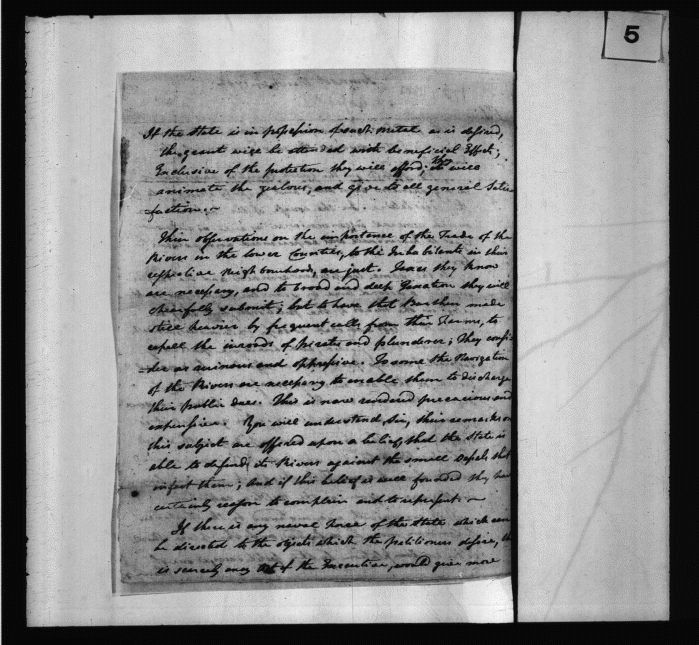 5
If the State is in possession of such metal as is desired,
the grant will be attended with beneficial Effects;
Exclusive of the protection they will afford; it will
animate the zealous, and give to all general Satis-
-faction. ~
Their observations on the importance of the Trade of the
Rivers in the lower Counties, to the Inhabitants in their
respective Neighbourhood, are just. Taxes they know
are necessary, and to broad and deep Taxation they will
chearfully submit; but to have that Burthen made
still heavier by frequent calls from their Farms, to
repell the inroads of Pirates and plunderers; They consi-
-der as ruinous and oppressive. To some the Navigation
of the Rivers are necessary to enable them to discharge
their public dues. This is now rendered precarious and
expensive. You will understand Sir, their remarks on
this subject are offered upon a belief, that the State is
able to defend its Rivers against the small Vessels that
infest them; And if this belief is well founded they have
certainly reason to complain and to represent. ~
If there is any naval Force of the State which can
be directed to the objects which the petitioners desire, th
is scarcely any Act of the Executive, would give more